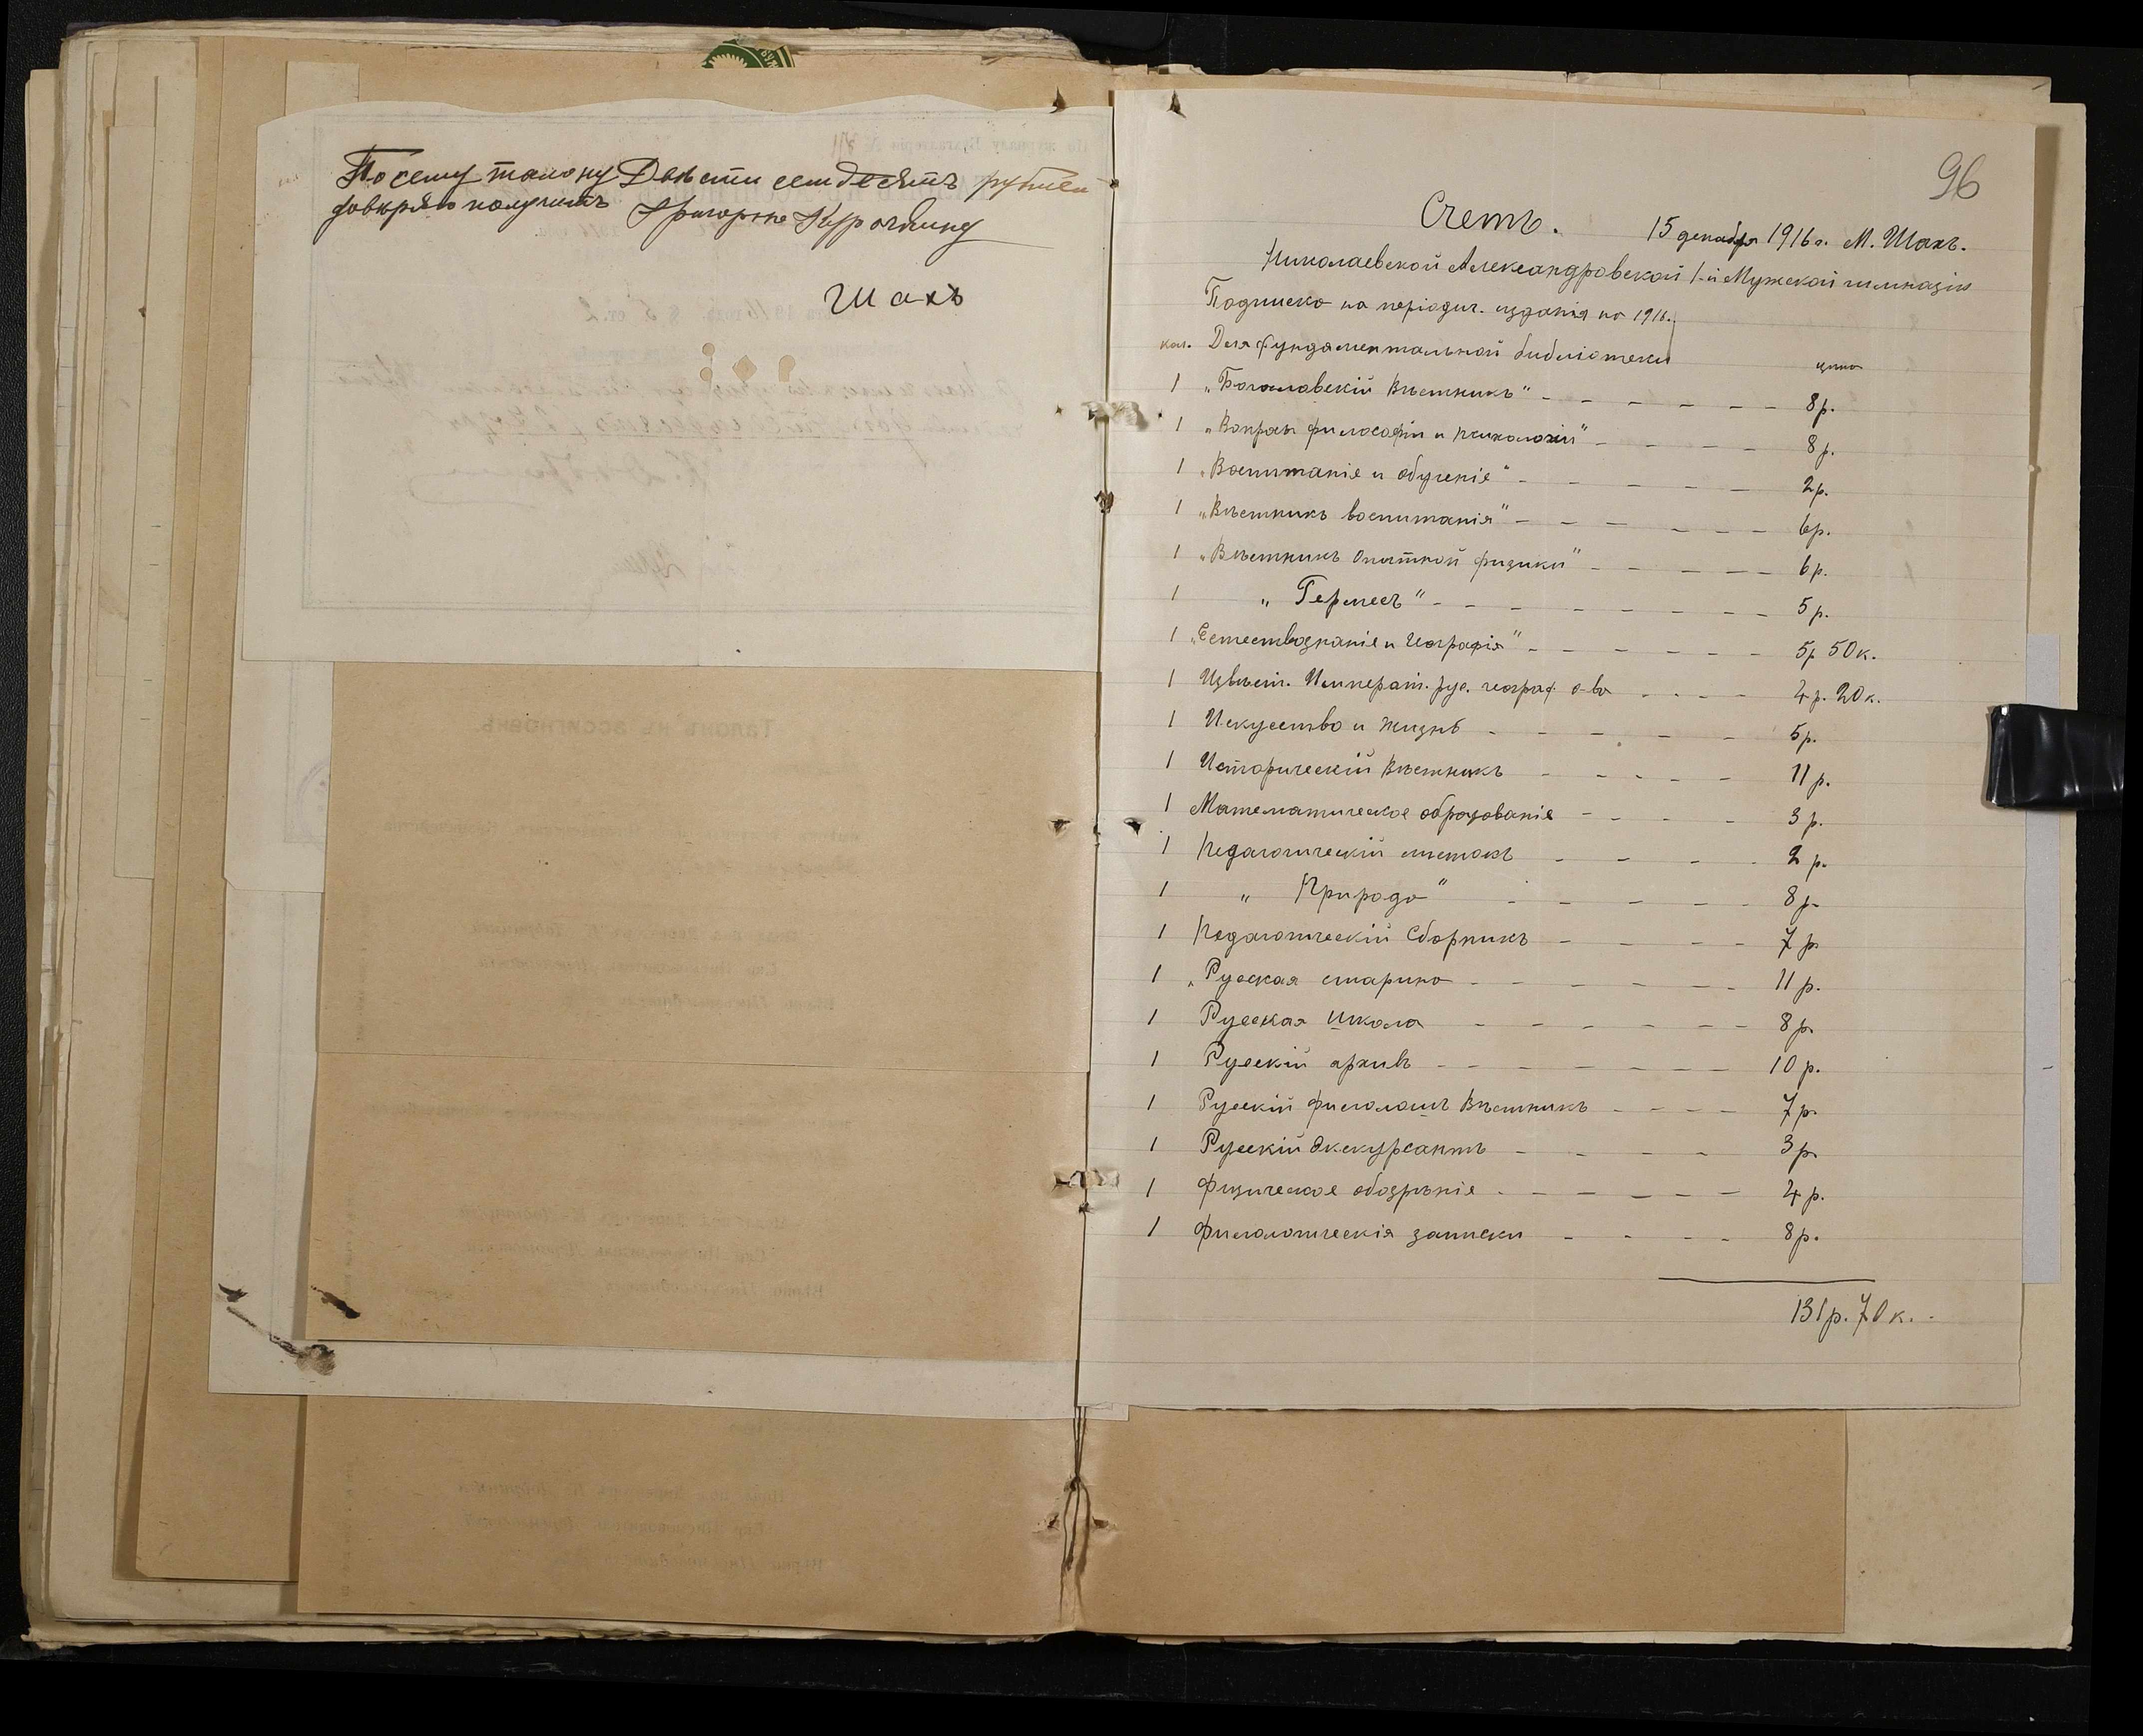 По сему талону Двѣсти семдесятъ рублей
довѣряю получить Григорію Курочкину
Шахъ
96
Счетъ. 15 декабря 1916 г. М. Шахъ.
Николаевской Александровской 1-й Мужской гимназіи
Подписка на періодич. изданія на 1916.
кол. Для фундаментальной библіотеки цѣна
1 „Богословскій Вѣстникъ" 8 р.
1 „Вопросы философіи и психологіи" 8 р.
1 „Воспитаніе и обученіе" 2 р.
1 „Вѣстникъ воспитанія" 6 р.
1 „Вѣстникъ опытной физики" 6 р.
1 „Гермесъ" 5 р.
1 „Естествознаніе и географія" 5 р. 50 к.
1 Извѣст. Императ. рус. географ. о-ва 4 р. 20 к.
1 Искусство и жизнь 5 р.
1 Историческій Вѣстникъ 11 р.
1 Математическое образованіе 3 р.
1 Педагогическій листокъ 2 р.
1 „Природа" 8 р.
1 Педагогическій Сборникъ 7 р.
1 „Русская старина 11 р.
1 Русская Школа 8 р.
1 Русскій архивъ 10 р.
1 Русскій филологич Вѣстникъ 7 р.
1 Русскій Экскурсантъ 3 р.
1 Физическое обозрѣніе 4 р.
1 Филологическія записки 8 р.
131 р. 70 к.